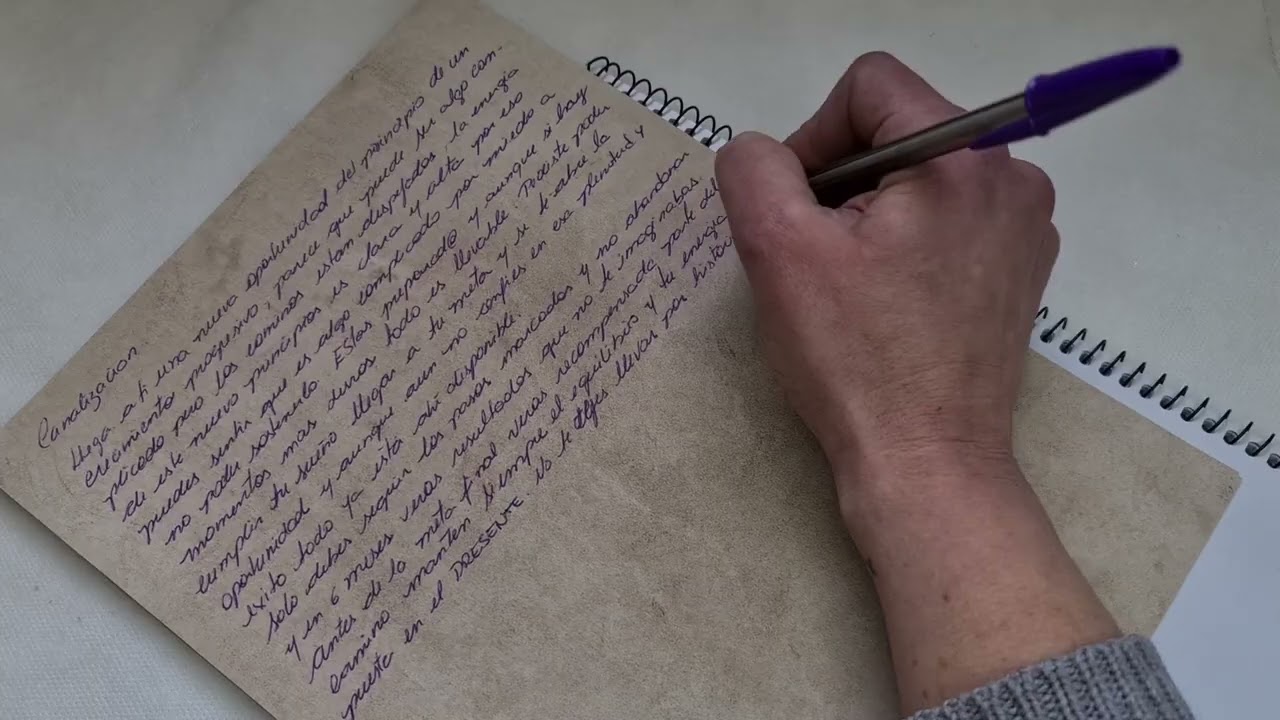 Canalizacion
llega a ti una nueva oportunidad del principio de un
crecimiento progresivo, parece que puede ser algo com-
plicado pero los caminos estan despejados, la energia
de este nuevo principios es clara y alta por eso
puedes sentir que es algo complicado por miedo a
no poder sostenerlo Estas preparad@ y aunque si hay
momentos mas duros todo es llevable Pudiste poder
cumplir tu sueño llegar a tu meta y se te abre la
oportunidad y aunque aun no confies en esa plenitud y
exito todo ya está ahí disponible.
solo debes seguir los pasos marcados y no abandonar
y en 6 meses veras resultados que no te imaginabas.
Antes de la meta final veras recompensada parte del
camino manten siempre el equilibrio y tu energia
puesta en el PRESENTE No te dejes llevar por histori